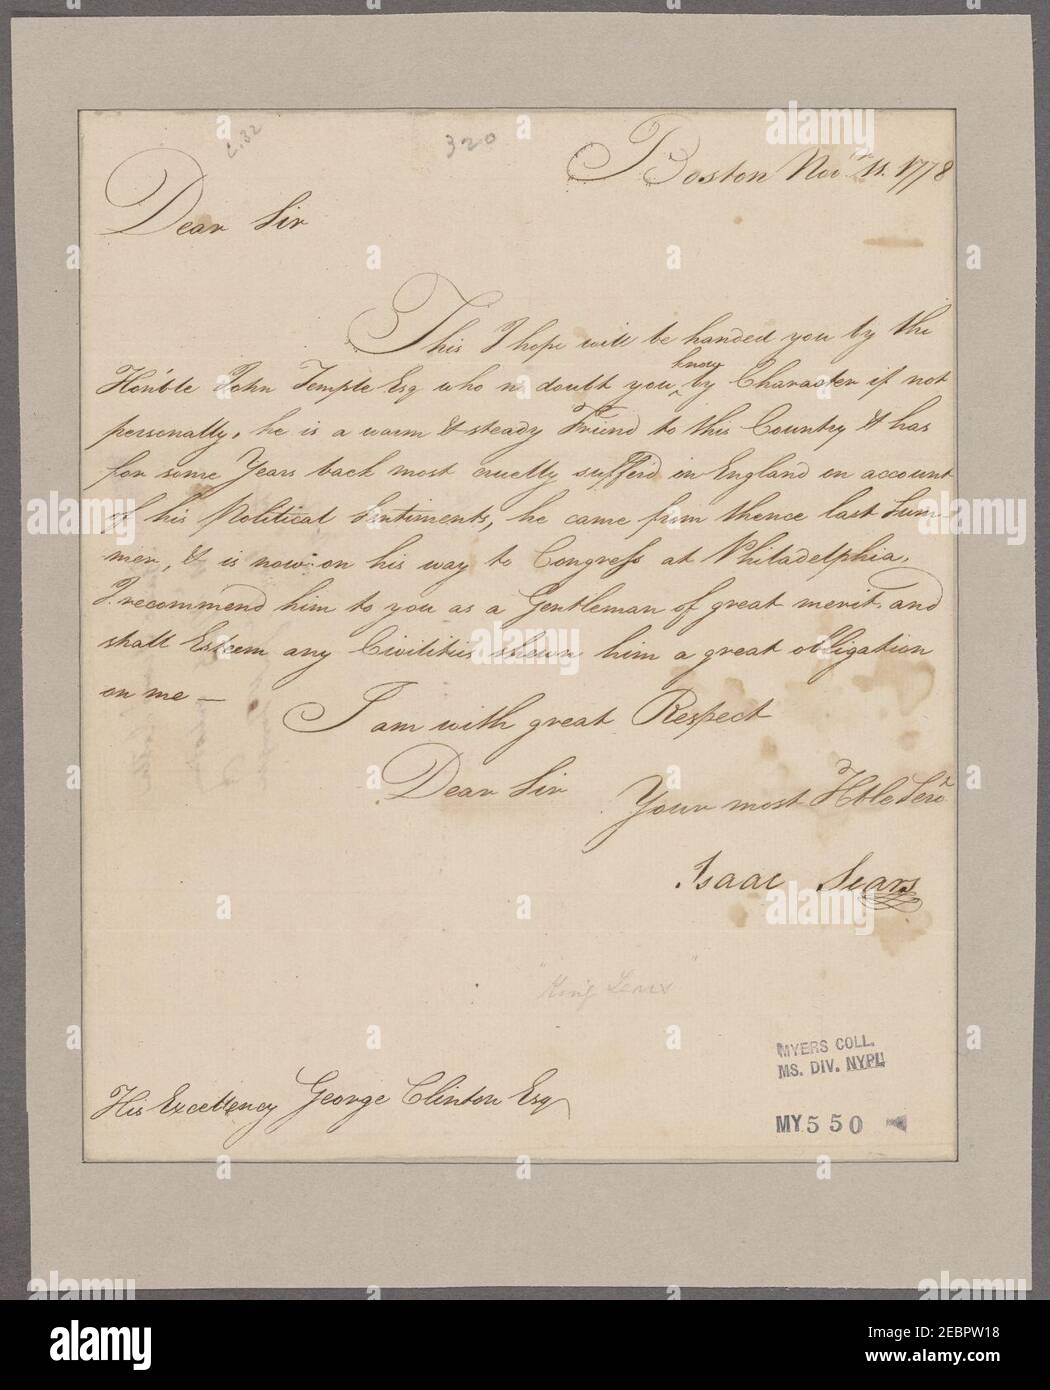 L.32
320
Boston Novr 11. 1778
Dear Sir
This I hope will be handed you by the
know
Honble John Temple Esq who no doubt you ^ by Character if not
personally, he is a warm & steady Friend to this Country & has
for some Years back most cruelly suffer'd in England on account
of his Political Sentiments, he came from thence last Sum-
mer, & is now on his way to Congress at Philadelphia.
I recommend him to you as a Gentleman of great merit and
shall Esteem any Civilities shewn him a great obligation
on me —
I am with great Respect
Dear Sir
Your most Hble Servt
Isaac Sears
"King Sears"
MYERS COLL.
MS. DIV. NYPL
His Excellency George Clinton Esq
MY 550
alamy
Image ID: 2EBPW18
www.alamy.com